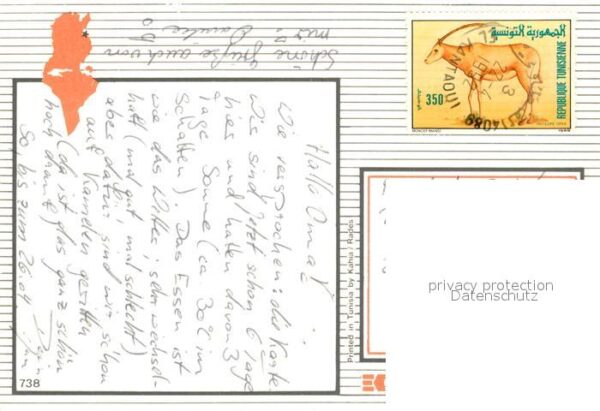 Hallo Oma!
Wie versprochen: die Karte.
Wir sind jetzt schon 6 Tage
hier und hatten davon 3
Tage Sonne (ca. 30°C im
Schatten). Das Essen ist
wie das Wetter; sehr wechsel-
haft (mal gut mal schlecht)
aber dafür sind wir schon
auf Kamelen geritten
(da ist das ganz schön
hoch drauf)
So, bis zum 26.04
Schöne Grüße auch von
mir!
738
Printed in Tunisia by Kahia / Rades
الجمهورية التونسية
REPUBLIQUE TUNISIENNE
350
EL KANTAOUI
4089
privacy protection
Datenschutz